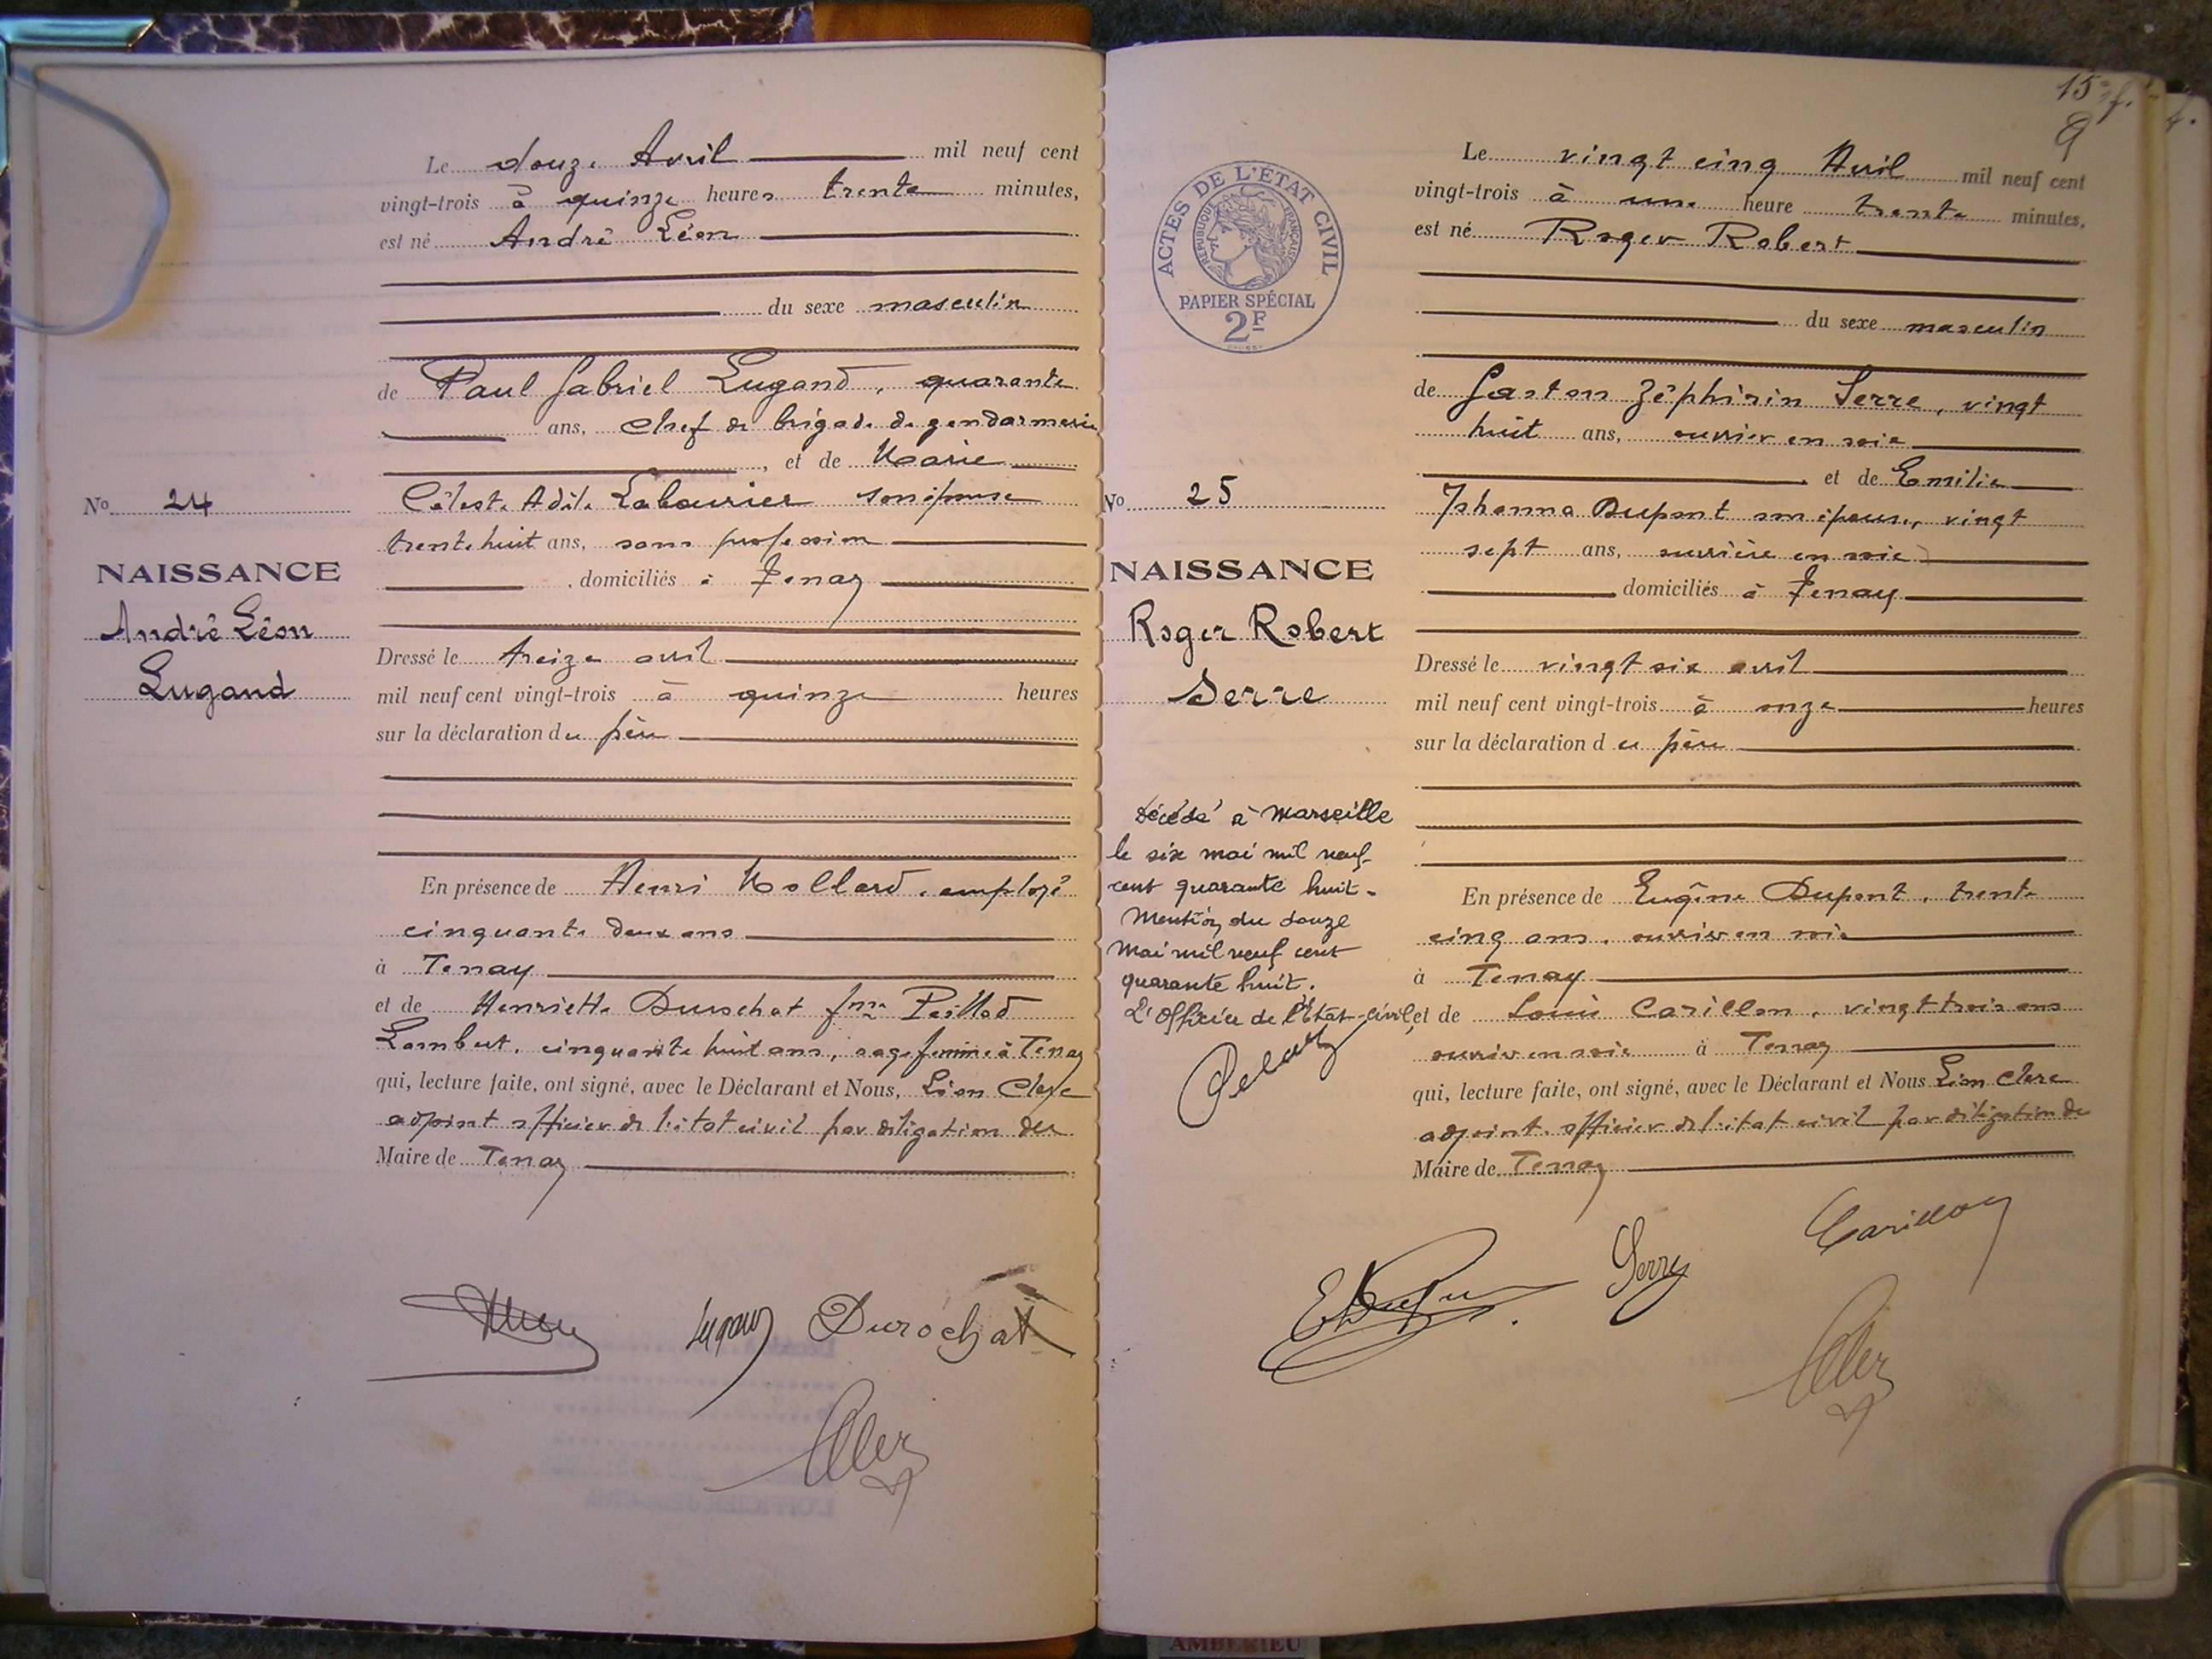 Le douze Avril mil neuf cent
vingt-trois à quinze heures trente minutes,
est né André Léon
du sexe masculin
de Paul Gabriel Lugand, quarante
ans, chef de brigade de gendarmerie
, et de Marie
Céleste Adèle Labourier son épouse
trente huit ans, sans profession
domiciliés à Tenay
No 24
NAISSANCE
André Léon
Lugand
Dressé le treize avril
mil neuf cent vingt-trois à quinze heures
sur la déclaration du père
En présence de Henri Mollard, employé
cinquante deux ans
à Tenay
et de Henriette Durochat fme
Lambert, cinquante huit ans, sage femme à Tenay
qui, lecture faite, ont signé, avec le Déclarant et Nous, Léon Clerc
adjoint officier de l'état civil par délégation du
Maire de Tenay
Lugand Durochat
15e f.
9
ACTES DE L'ÉTAT CIVIL
RÉPUBLIQUE FRANÇAISE
PAPIER SPÉCIAL
2F
Le vingt cinq Avril mil neuf cent
vingt-trois à une heure trente minutes,
est né Roger Robert
du sexe masculin
de Gaston Zéphirin Serre, vingt
huit ans, ouvrier en soie
et de Emilie
Johanna Dupont son épouse, vingt
sept ans, ouvrière en soie
domiciliés à Tenay
No 25
NAISSANCE
Roger Robert
Serre
Dressé le vingt six avril
mil neuf cent vingt-trois à onze heures
sur la déclaration du père
Décédé à Marseille
le six mai mil neuf
cent quarante huit -
Mention du douze
Mai mil neuf cent
quarante huit.
L'Officier de l'Etat-civil,
En présence de Eugène Dupont, trente
cinq ans, ouvrier en soie
à Tenay
et de Louis Carillon, vingt trois ans
ouvrier en soie à Tenay
qui, lecture faite, ont signé, avec le Déclarant et Nous Léon Clerc
adjoint officier de l'état civil par délégation du
Maire de Tenay
Serre Carillon
AMBERIEU